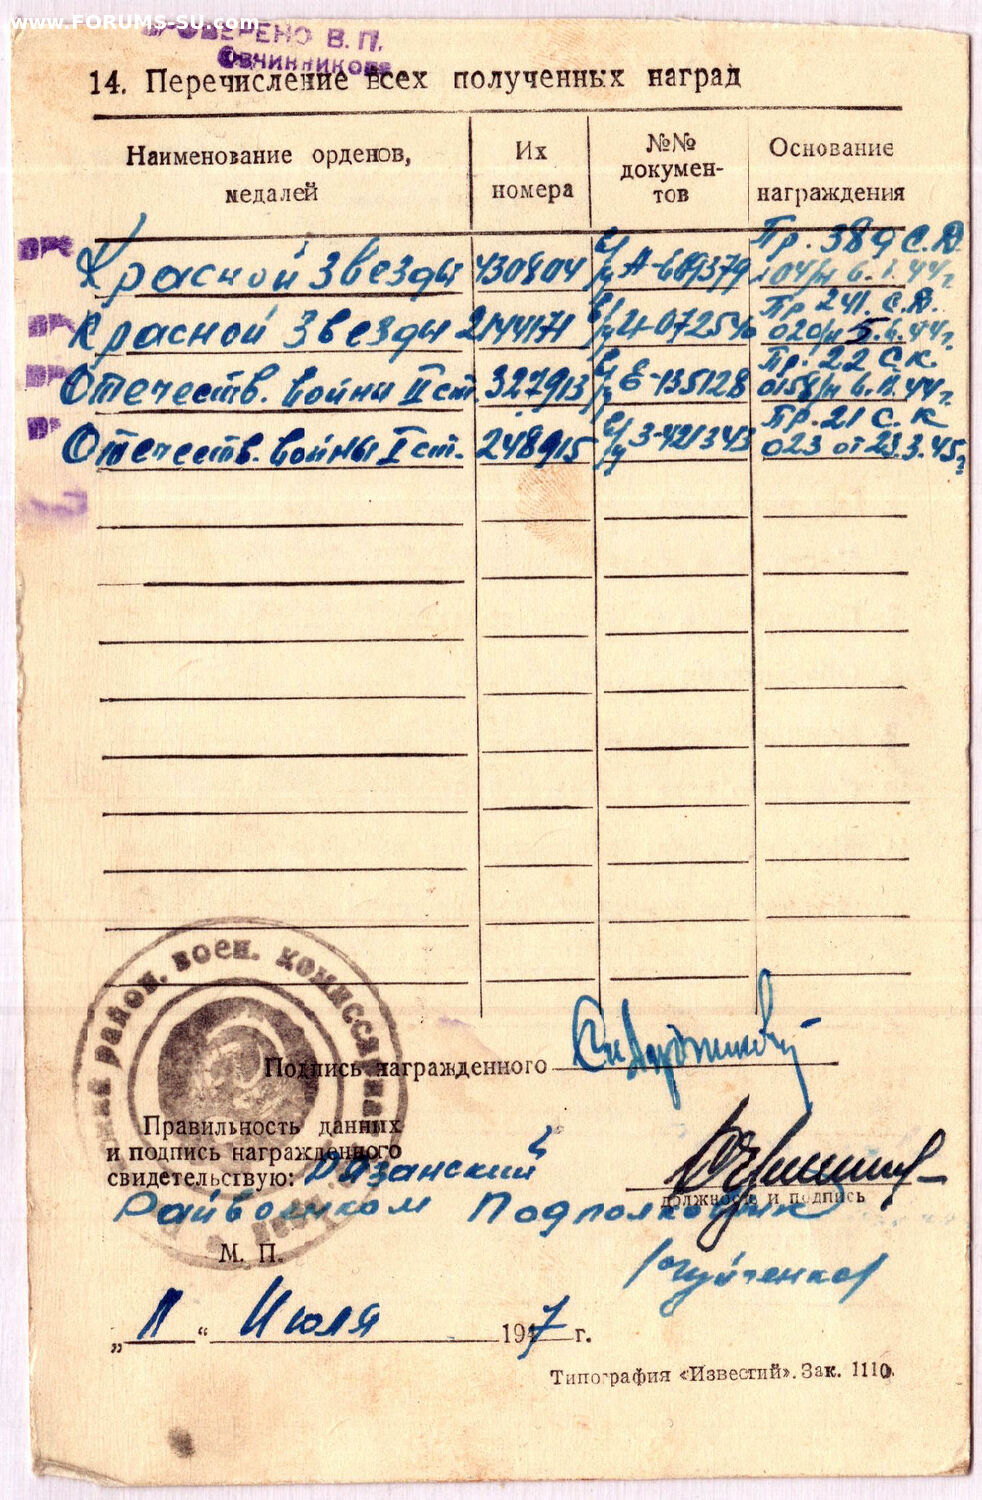 www.FORUMS-SU.com
ПРОВЕРЕНО В. П.
Овчинникова
14. Перечисление всех полученных наград
Наименование орденов, медалей
Их номера
№№ докумен-тов
Основание награждения
Красной Звезды 430804 А-609379 Пр. 389 С.Д. 04/н 6.1.44г.
Красной Звезды 2144171 072540 Пр 241. С.Д. 020/н 5.6.44г.
Отечеств. войны II ст. 327913 Е-135128 Пр. 22 С.К. 0158/н 6.11.44г.
Отечеств. войны I ст. 248915 З-421343 Пр. 21 С. К 023 от 23.3.45г
район. воен. комиссариат
Подпись награжденного
Правильность данных
и подпись награжденного
свидетельствую: Рязанский
должность и подпись
Райвоенком Подполковник
М. П.
„ 11 “ Июля 1947 г.
Типография «Известий». Зак. 1110.